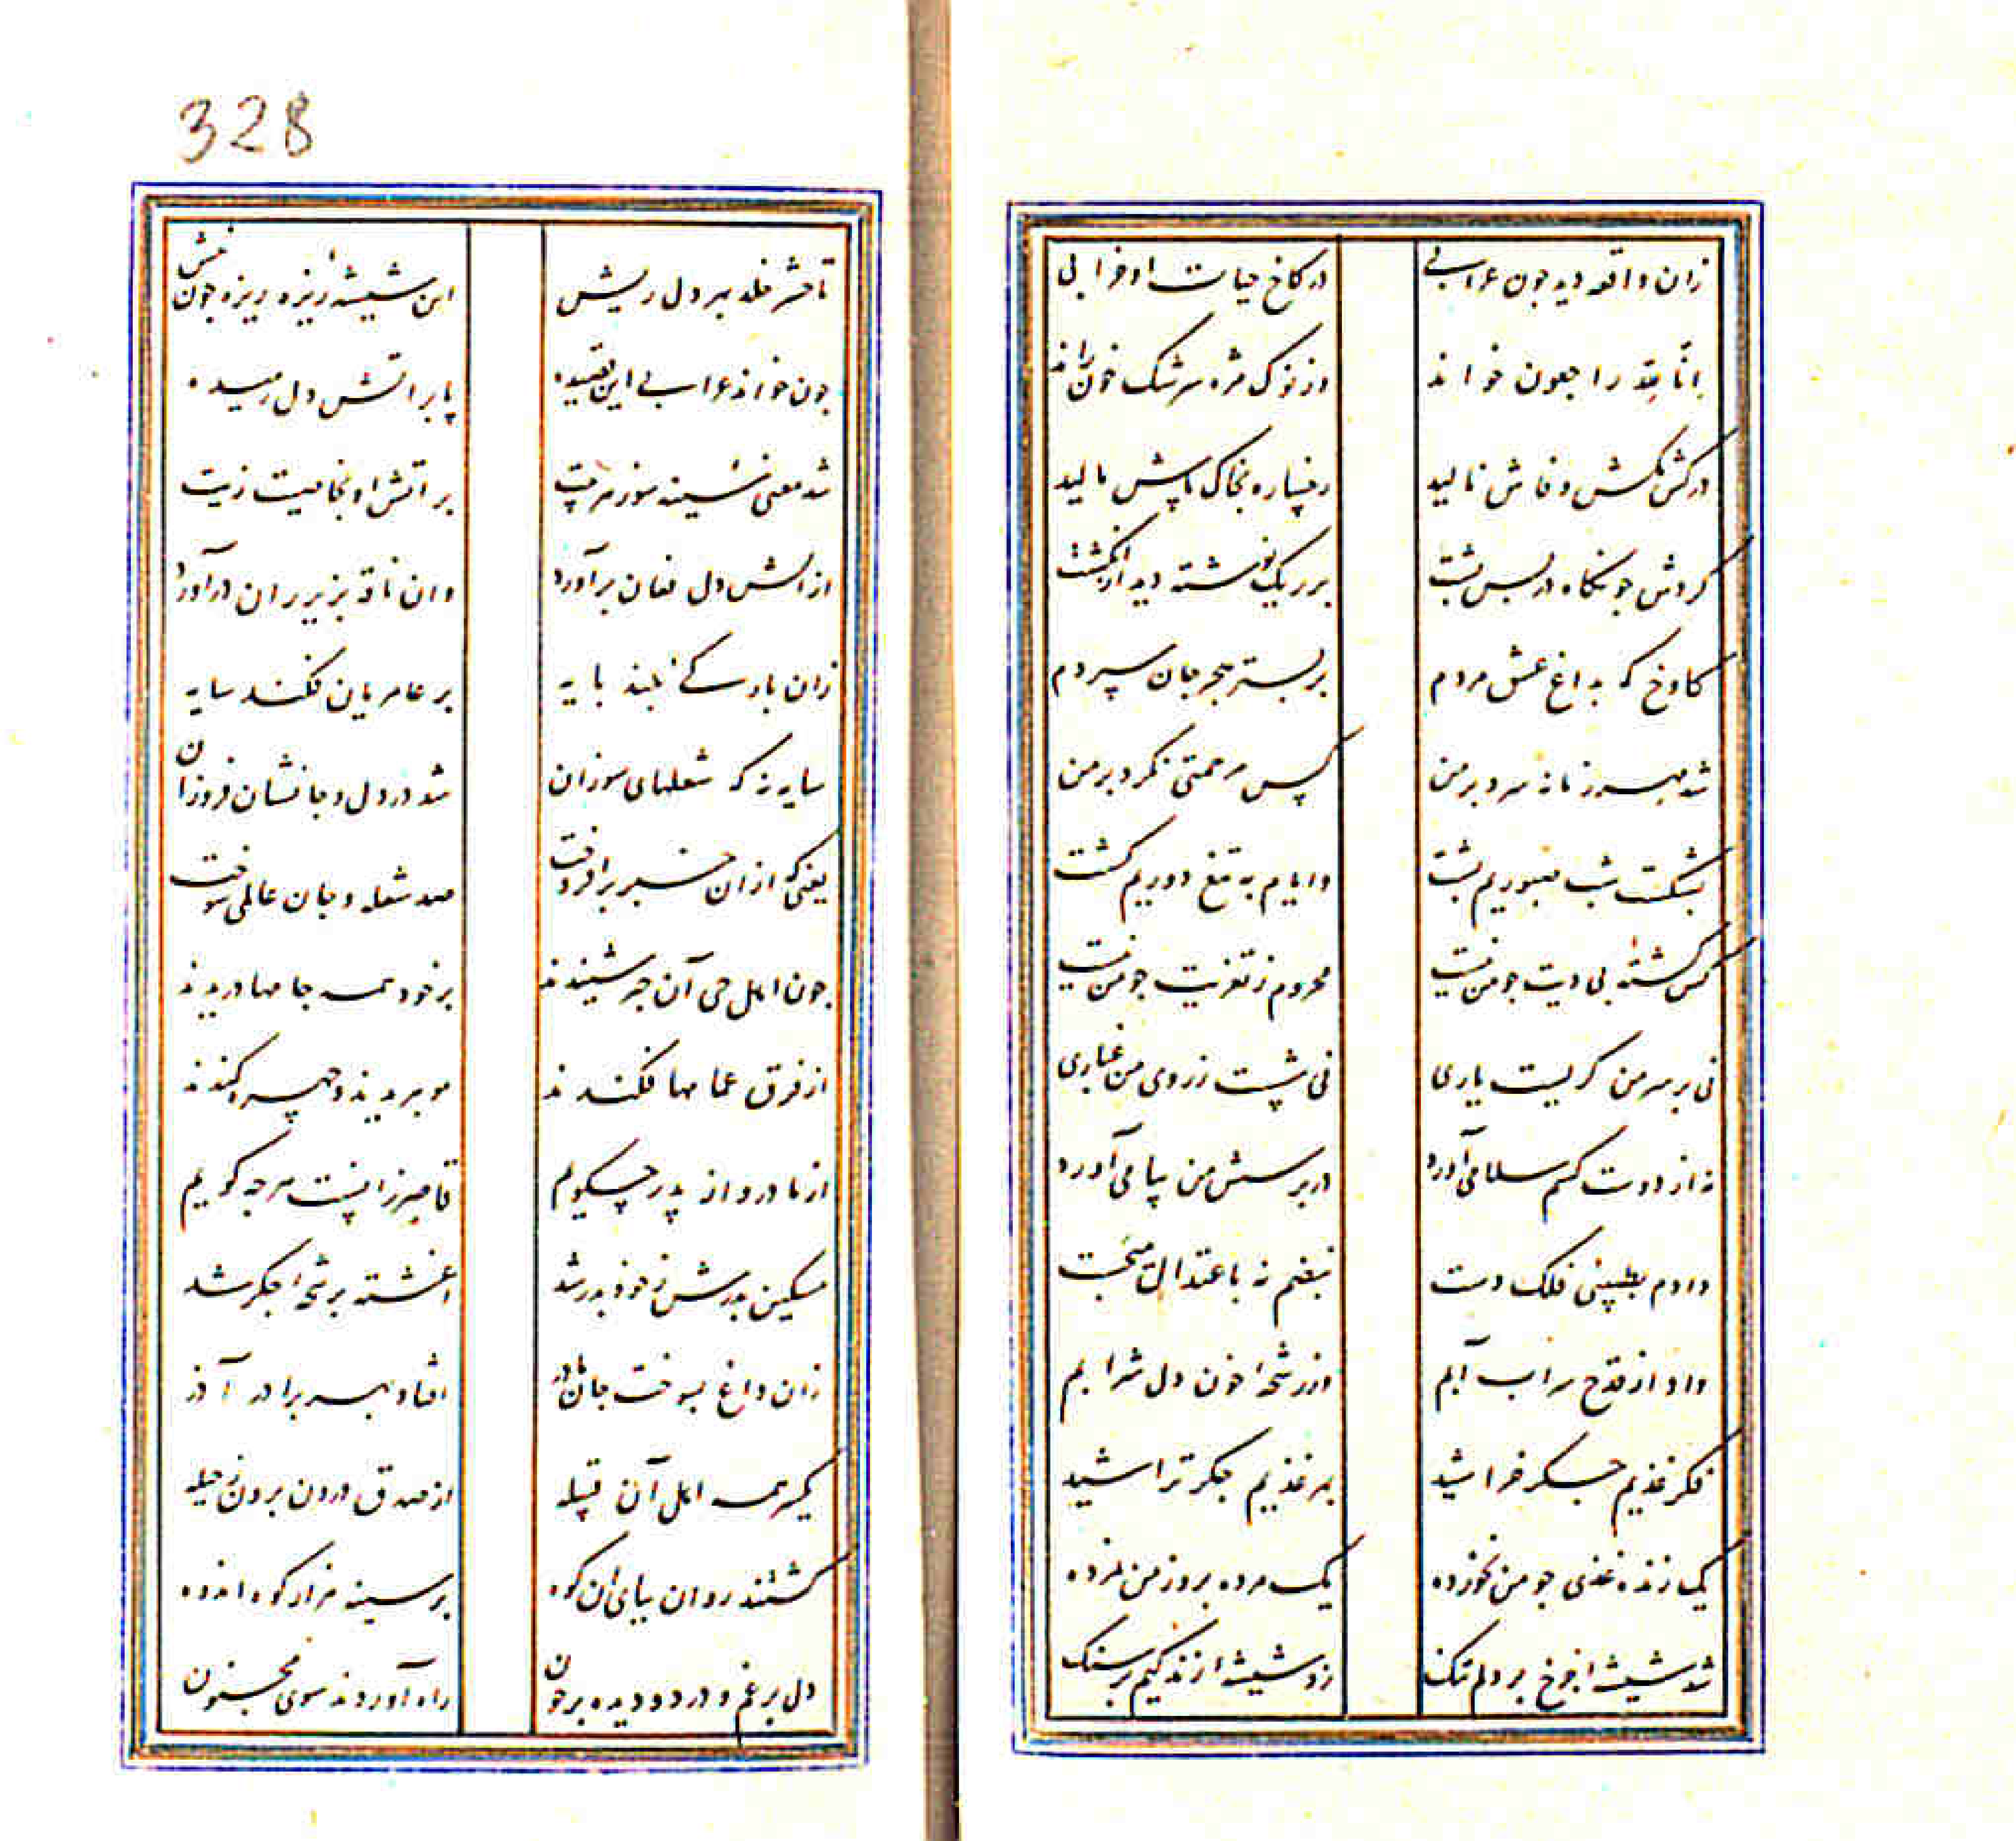 زان واقعه دید چون عرابی
در کاخ حیات او خرابی
انا لله راجعون خواند
وز نوک مژه سرشک خون راند
در کش مکش وفاش نالید
رخساره بخاک پاش مالید
کردش چو نگاه در پس پشت
بر ریک نوشته دید از انکشت
کاوخ که بداغ عشق مردم
بر بستر هجر جان سپردم
شد مهر زمانه سرد بر من
کس مرحمتی نکرد بر من
بشکست شب صبوریم پشت
و ایام به تیغ دوریم کشت
کس کشته بی دیت چو من نیست
محروم ز تعزیت چو من نیست
نی بر سر من کریست یاری
نی شست ز روی من غباری
نه از دوست کسم سلامی آورد
در پرسش من پیامی آورد
دادم بطبیبی فلک دست
نبضم نه باعتدال می جست
داد از قدح سراب آبم
وز رشحه خون دل شرابم
فکر غذیم جگر خراشید
بهر غذیم جکر تراشید
یک زنده غذی چو من نخورده
یک مرده بروز من نمرده
شد شیشه چرخ بر دلم تنک
زد شیشه زندکیم بر سنک
328
تا حشر خلد بهر دل ریش
این شیشه ریزه ریزه چون نیش
چون خواند عرابی این قصیده
پا بر آتش دل رمیده
شد معنی سینه سوز هر بیت
بر آتش او بخاصیت زیت
از آتش دل فغان برآورد
وان ناقه بزیر ران درآورد
زان بارکی بلند پایه
بر عامریان فکند سایه
سایه نه که شعلهای سوزان
شد در دل و جانشان فروزان
یعنی که از آن خبر برافروخت
صد شعله و جان عالمی سوخت
چون اهل حی آن خبر شنیدند
بر خود همه جامها دریدند
از فرق عمامها فکندند
مو ببریدند و چهره کندند
از مادر و از پدر چکویم
قاصر ز آنست هر چه کویم
مسکین پدرش ز خود بدر شد
آغشته برشحه جکر شد
زان داغ بسوخت جان مادر
افتاد بهر برادر آذر
یکسر همه اهل آن قبیله
از صدق درون برون ز حیله
کشتند روان بپای آن کوه
بر سینه هزار کوه اندوه
دل پر غم و درد و دیده پر خون
راه آوردند سوی مجنون